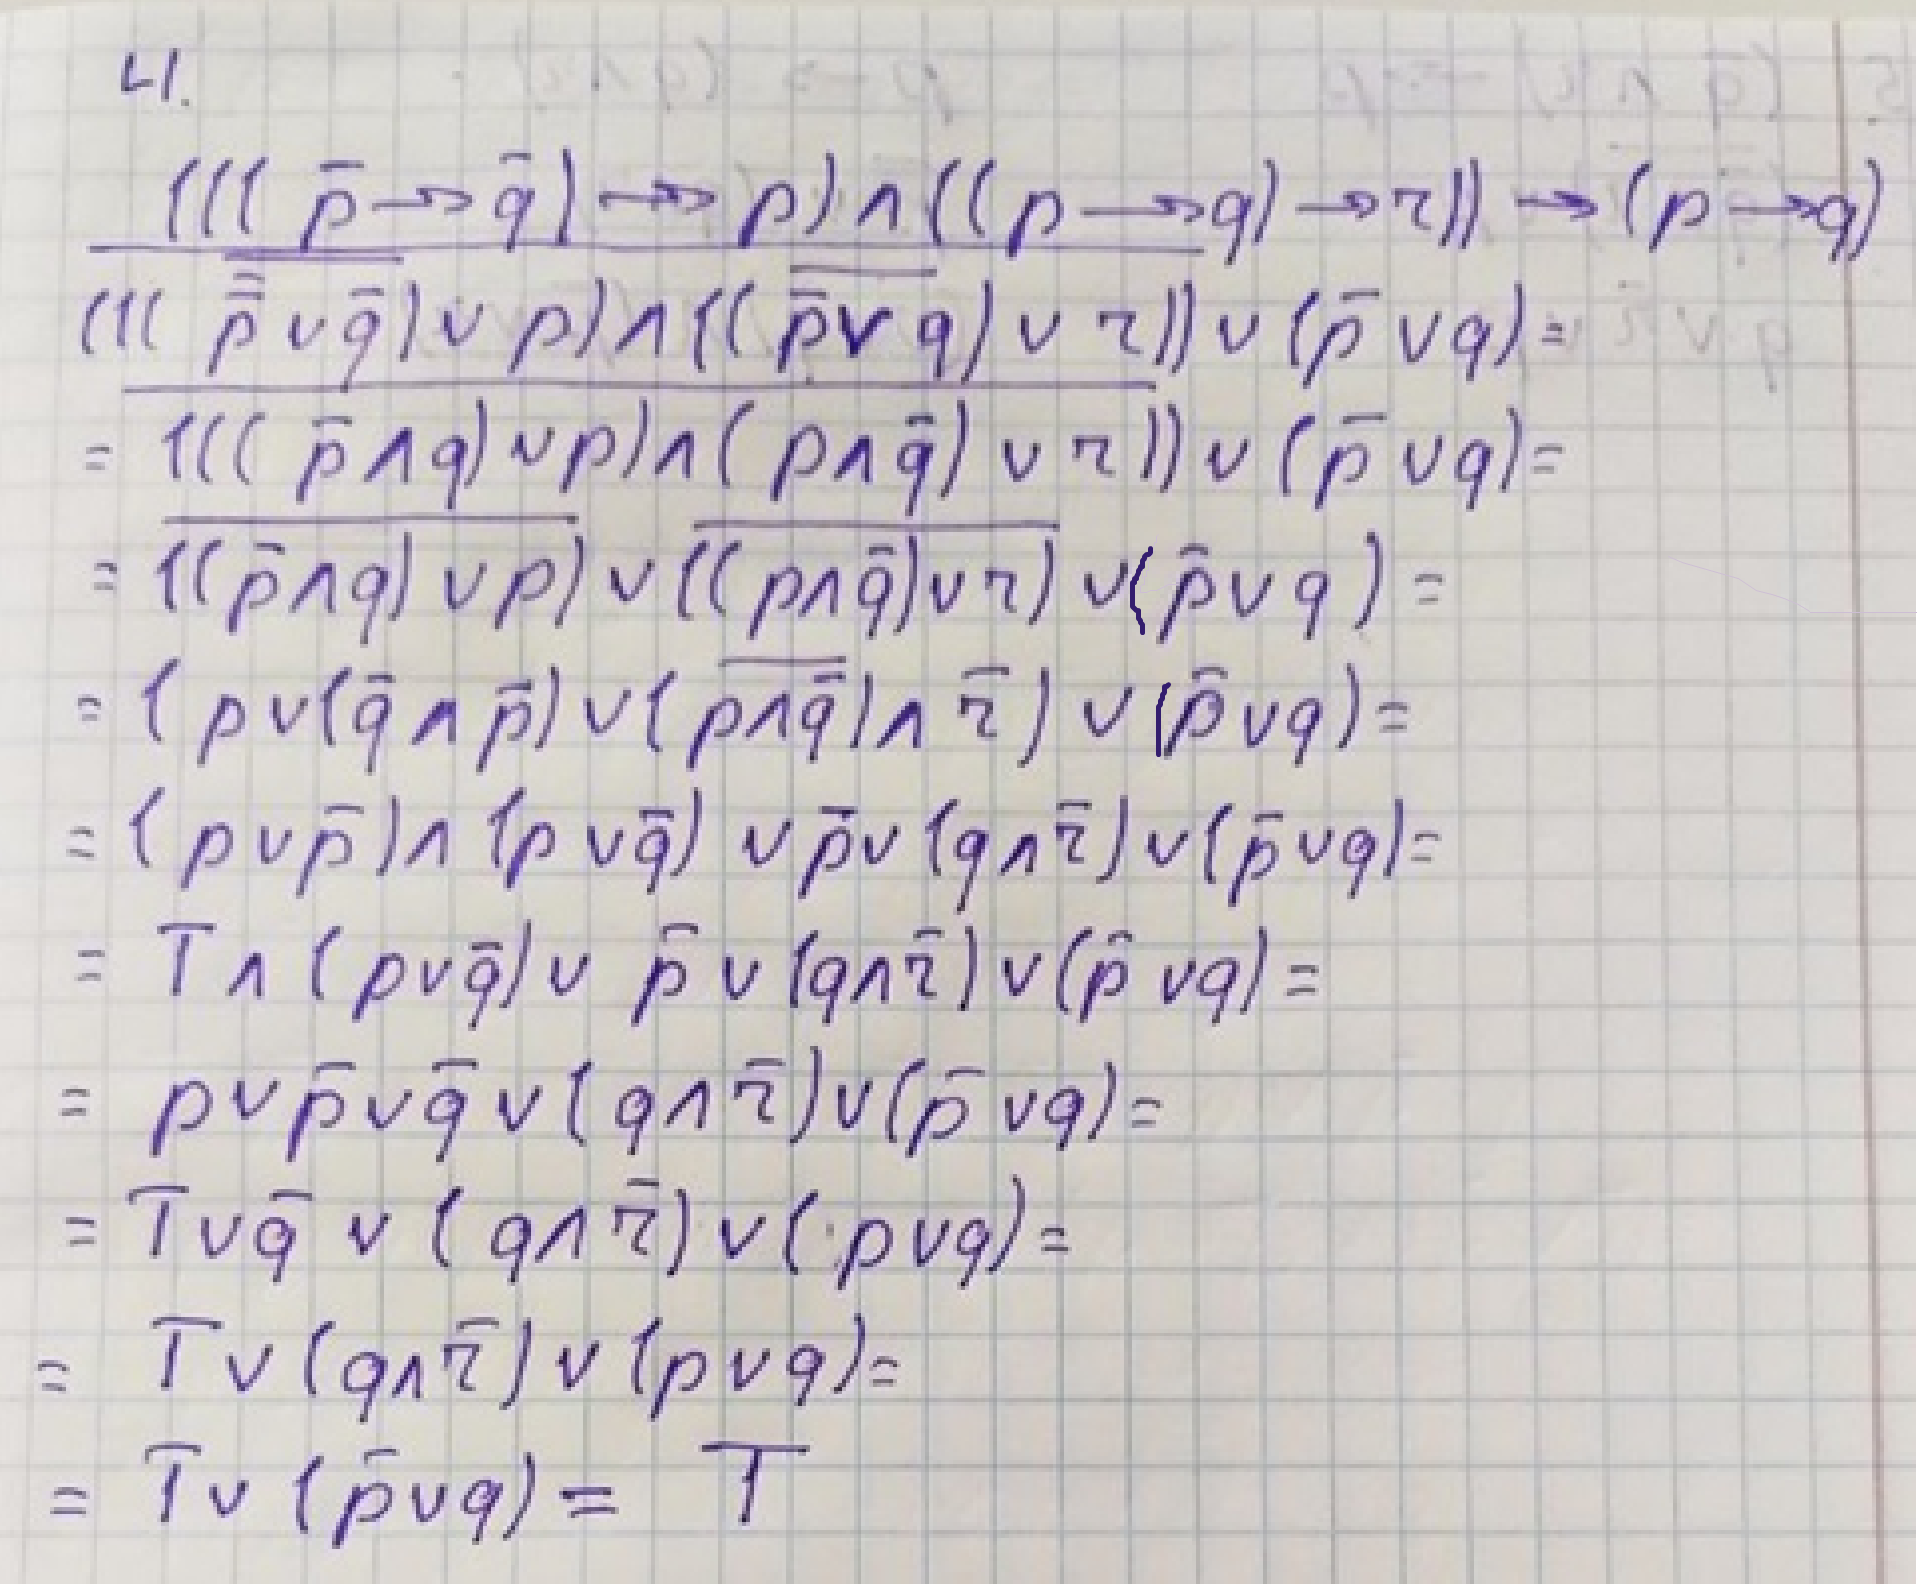 4.
(((p̄ → q̄) → p) ∧ ((p → q) → r)) → (p → q)
(((p̿ ∨ q̄) ∨ p) ∧ ((p̄ ∨ q) ∨ r)) ∨ (p̄ ∨ q) =
= (((p̄ ∧ q) ∨ p) ∧ (p ∧ q̄) ∨ r)) ∨ (p̄ ∨ q) =
= ((p̄ ∧ q) ∨ p) ∨ ((p ∧ q̄) ∨ r) ∨ (p̄ ∨ q) =
= (p ∨ (q̄ ∧ p̄) ∨ (p ∧ q̄) ∧ r̄) ∨ (p̄ ∨ q) =
= (p ∨ p̄) ∧ (p ∨ q̄) ∨ p̄ ∨ (q ∧ r̄) ∨ (p̄ ∨ q) =
= T ∧ (p ∨ q̄) ∨ p̄ ∨ (q ∧ r̄) ∨ (p̄ ∨ q) =
= p ∨ p̄ ∨ q̄ ∨ (q ∧ r̄) ∨ (p̄ ∨ q) =
= T ∨ q̄ ∨ (q ∧ r̄) ∨ (p ∨ q) =
= T ∨ (q ∧ r̄) ∨ (p ∨ q) =
= T ∨ (p̄ ∨ q) = T